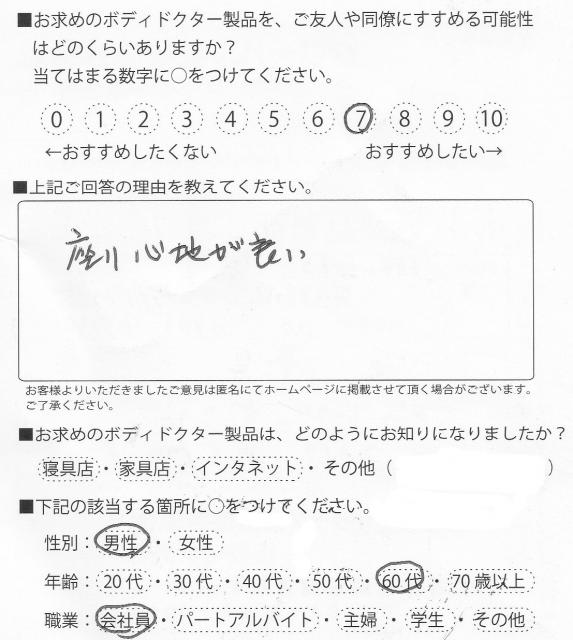 ■お求めのボディドクター製品を、ご友人や同僚にすすめる可能性
はどのくらいありますか?
当てはまる数字に○をつけてください。
0 1 2 3 4 5 6 7 8 9 10
←おすすめしたくない おすすめしたい→
■上記ご回答の理由を教えてください。
座り心地が良い
お客様よりいただきましたご意見は匿名にてホームページに掲載させて頂く場合がございます。
ご了承ください。
■お求めのボディドクター製品は、どのようにお知りになりましたか?
寝具店・家具店・インタネット・その他( )
■下記の該当する箇所に○をつけてください。
性別:男性・女性
年齢:20代・30代・40代・50代・60代・70歳以上
職業:会社員・パートアルバイト・主婦・学生・その他